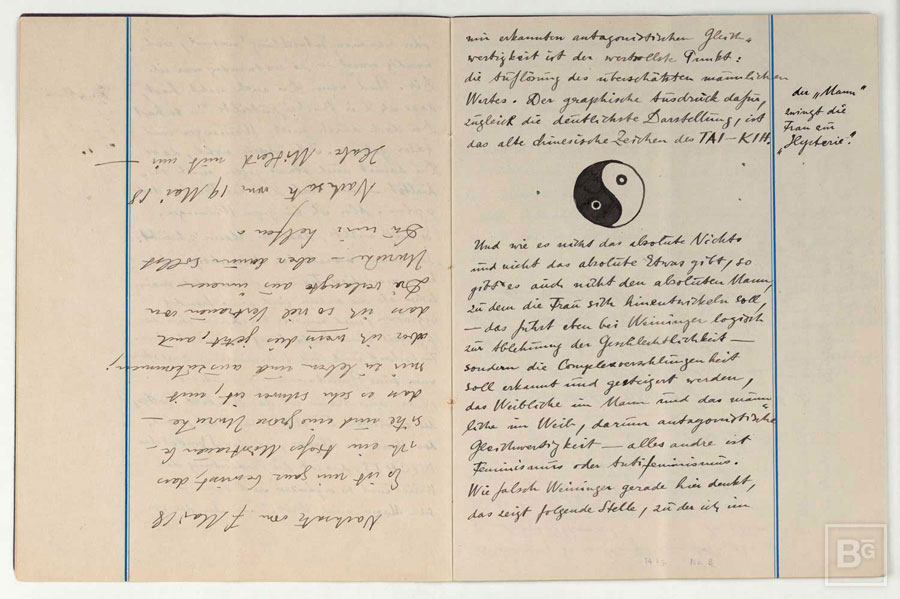 Nachsatz vom 7. Mai 18
Es ist nun ganz bewusst, dass
ich ein tiefes Misstrauen be-
sitze und eine grosse Unruhe —
dass es sehr schwer ist, mit
mir zu leben und auszukommen;
aber ich weiss dies jetzt, und
dass ich so viel Vertrauen von
Dir verlangte aus innerer
Unruhe — aber darum sollst
Du mir helfen.
Nachsatz vom 19 Mai 18
Habe Mitleid mit mir —
mir erkannten antagonistischen Gleich-
wertigkeit ist der wertvollste Punkt:
die Auflösung des überschätzten männlichen
Wertes. Der graphische Ausdruck dafür,
zugleich die deutlichste Darstellung, ist
das alte chinesische Zeichen des TAI–KIH.
der „Mann"
zwingt die
Frau zur
„Hysterie".
Und wie es nicht das absolute Nichts
und nicht das absolute Etwas gibt, so
gibt es auch nicht den absoluten Mann,
zu dem die Frau sich hinentwickeln soll,
— das führt eben bei Weininger logisch
zur Ablehnung der Geschlechtlichkeit —
sondern die
soll erkannt und gesteigert werden,
das Weibliche im Mann und das männ-
liche im Weib, darum antagonistische
Gleichwertigkeit — alles andre ist
Feminismus oder Antifeminismus.
Wie falsch Weininger gerade hier denkt,
das zeigt folgende Stelle, zu der ich im
BG